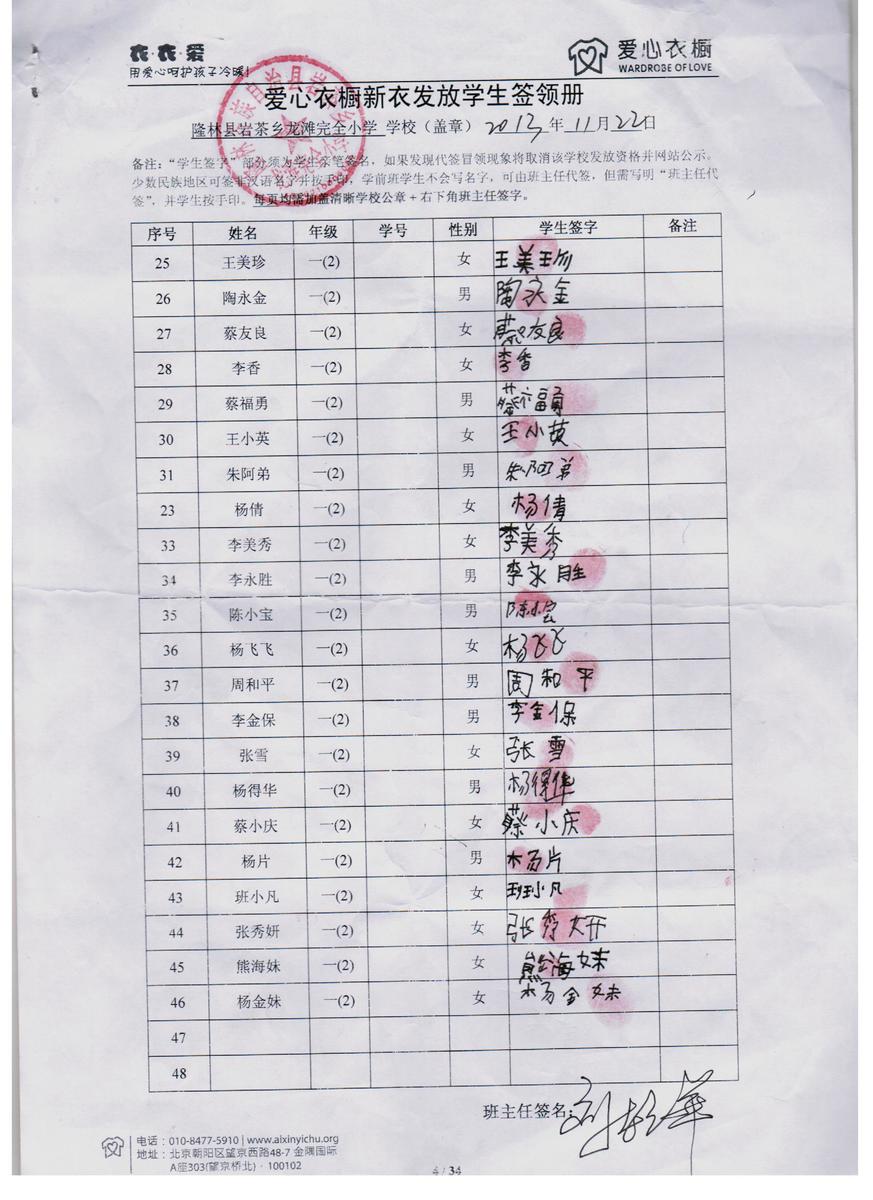 衣·衣·爱
用爱心呵护孩子冷暖!
爱心衣橱
WARDROBE OF LOVE
爱心衣橱新衣发放学生签领册
隆林县岩茶乡龙滩完全小学 学校（盖章） 2013 年 11 月 22 日
备注：“学生签字”部分须为学生亲笔签名，如果发现代签冒领现象将取消该学校发放资格并网站公示。
少数民族地区可签非汉语名字并按手印，学前班学生不会写名字，可由班主任代签，但需写明“班主任代
签”，并学生按手印。每页均需加盖清晰学校公章+右下角班主任签字。
序号 姓名 年级 学号 性别 学生签字 备注
25 王美珍 一(2) 女 王美珍
26 陶永金 一(2) 男 陶永金
27 蔡友良 一(2) 女 蔡友良
28 李香 一(2) 女 李香
29 蔡福勇 一(2) 男 蔡福勇
30 王小英 一(2) 女 王小英
31 朱阿弟 一(2) 男 朱阿弟
23 杨倩 一(2) 女 杨倩
33 李美秀 一(2) 女 李美秀
34 李永胜 一(2) 男 李永胜
35 陈小宝 一(2) 男 陈小宝
36 杨飞飞 一(2) 女 杨飞飞
37 周和平 一(2) 男 周和平
38 李金保 一(2) 男 李金保
39 张雪 一(2) 女 张雪
40 杨得华 一(2) 男 杨得华
41 蔡小庆 一(2) 女 蔡小庆
42 杨片 一(2) 男 杨片
43 班小凡 一(2) 女 班小凡
44 张秀妍 一(2) 女 张秀妍
45 熊海妹 一(2) 女 熊海妹
46 杨金妹 一(2) 女 杨金妹
47
48
班主任签名：
电话：010-8477-5910 | www.aixinyichu.org
地址：北京朝阳区望京西路48-7 金隅国际
A座303(望京桥北)·100102
4 / 34